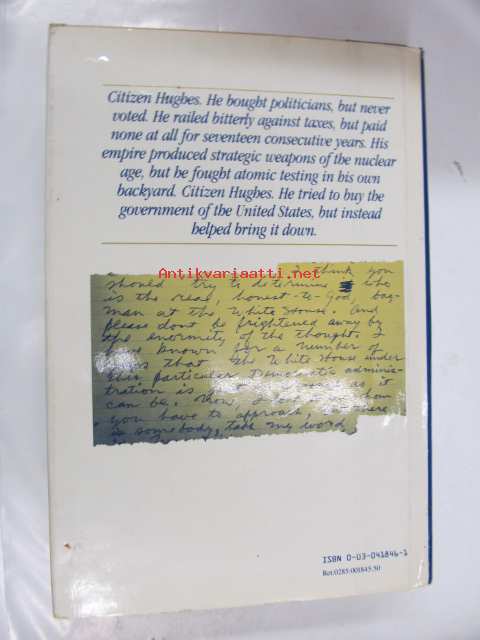 Citizen Hughes. He bought politicians, but never
voted. He railed bitterly against taxes, but paid
none at all for seventeen consecutive years. His
empire produced strategic weapons of the nuclear
age, but he fought atomic testing in his own
backyard. Citizen Hughes. He tried to buy the
government of the United States, but instead
helped bring it down.
Antikvariaatti.net
I think you
should try to determine who
is the real, honest-to-God, bag-
man at the White House. And
please dont be frightened away by
the enormity of the thought. I
have known for a number of
that the White House under
this particular Democratic adminis-
tration is as it
can be. Now, I
you have to approach, there
is somebody, take my word
ISBN 0-03-041846-1
Bot:0285:001845:50